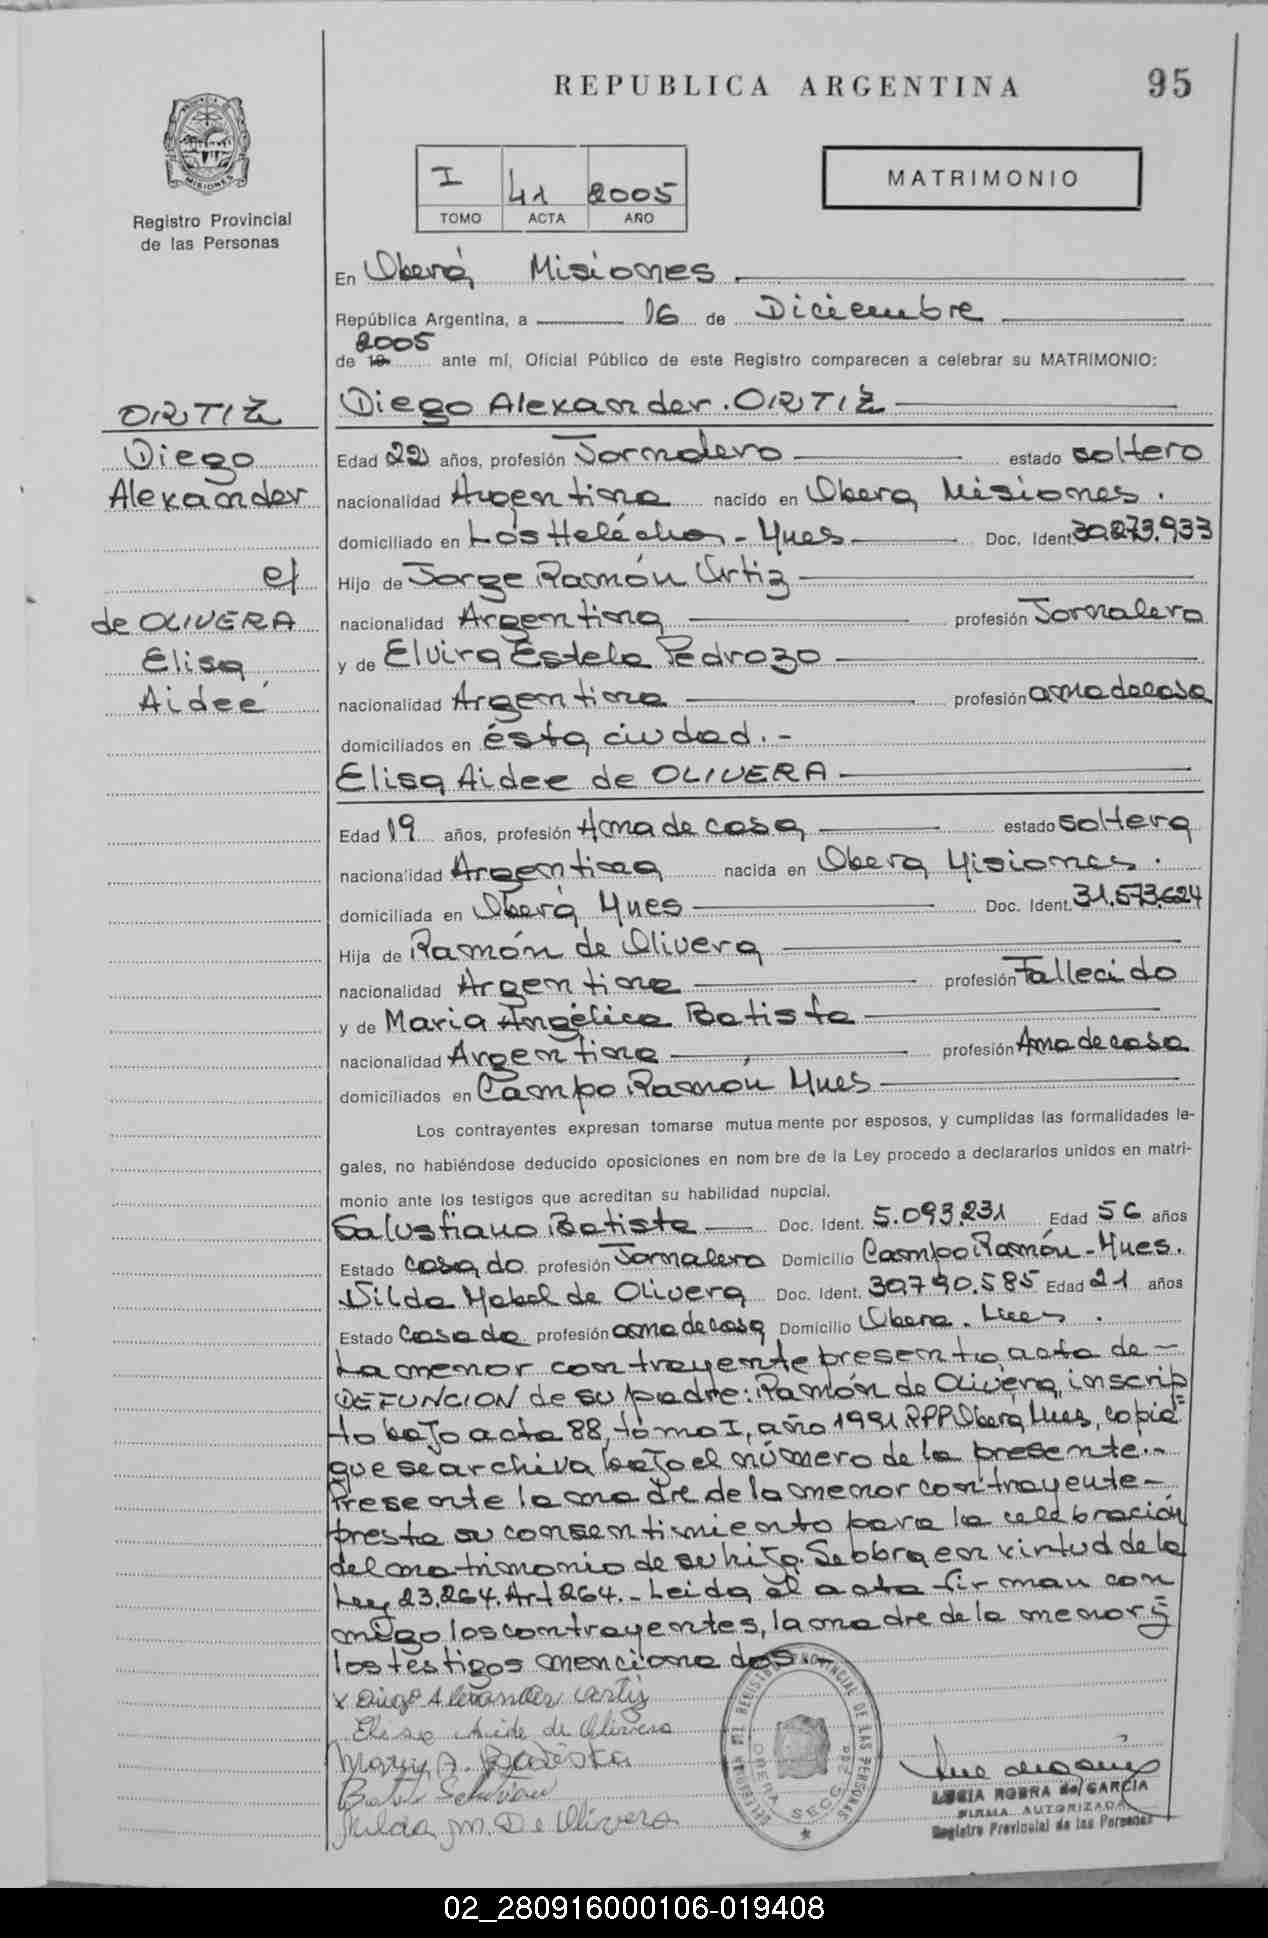 REPUBLICA ARGENTINA
95
MISIONES
Registro Provincial
de las Personas
I 41 2005
TOMO ACTA AÑO
MATRIMONIO
En Oberá, Misiones
República Argentina, a 16 de Diciembre
2005
de 19 ante mí, Oficial Público de este Registro comparecen a celebrar su MATRIMONIO:
ORTIZ
Diego
Alexander
c/
de OLIVERA
Elisa
Aideé
Diego Alexander ORTIZ
Edad 22 años, profesión Jornalero estado soltero
nacionalidad Argentina nacido en Oberá Misiones.
domiciliado en Los Helechos - Mnes Doc. Ident. 30.273.933
Hijo de Jorge Ramón Ortiz
nacionalidad Argentina profesión Jornalero
y de Elvira Estela Pedrozo
nacionalidad Argentina profesión ama de casa
domiciliados en ésta ciudad.-
Elisa Aidee de OLIVERA
Edad 19 años, profesión Ama de casa estado soltera
nacionalidad Argentina nacida en Oberá Misiones.
domiciliada en Oberá Mnes Doc. Ident. 31.573.624
Hija de Ramón de Olivera
nacionalidad Argentina profesión Fallecido
y de Maria Angélica Batista
nacionalidad Argentina profesión Ama de casa
domiciliados en Campo Ramón Mnes
Los contrayentes expresan tomarse mutua mente por esposos, y cumplidas las formalidades le-
gales, no habiéndose deducido oposiciones en nom bre de la Ley procedo a declararlos unidos en matri-
monio ante los testigos que acreditan su habilidad nupcial.
Salustiano Batista Doc. Ident. 5.093.231 Edad 56 años
Estado casado profesión Jornalero Domicilio Campo Ramón - Mnes.
Silda Mabel de Olivera Doc. Ident. 30.790.585 Edad 21 años
Estado Casada profesión ama de casa Domicilio Oberá. Mnes.
La menor contrayente presentó acta de -
DEFUNCION de su padre: Ramón de Olivera, inscrip
to bajo acta 88, tomo I, año 1991 RPP Oberá Mnes, copia
que se archiva bajo el número de la presente.-
Presente la madre de la menor contrayente -
presta su consentimiento para la celebración
del matrimonio de su hija. Se obra en virtud de la
Ley 23.264. Art 264.- Leida el acta firman con
migo los contrayentes, la madre de la menor y
los testigos mencionados.-
x Diego Alexander Ortiz
Elisa Aide de Olivera
Batista
M. De Olivera
DELEGACION DEL REGISTRO PROVINCIAL DE LAS PERSONAS
OBERA SECC. 2ª
LUCIA ROBRA de GARCIA
FIRMA AUTORIZADA
Registro Provincial de las Personas
02_280916000106-019408